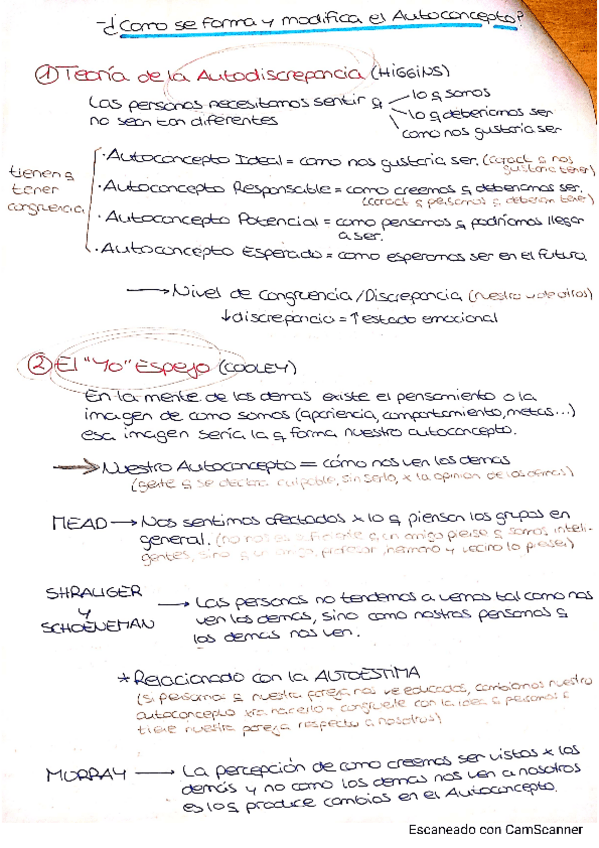 -¿Como se forma y modifica el Autoconcepto?
① Teoría de la Autodiscrepancia (HIGGINS)
Las personas necesitamos sentir q
no sean tan diferentes
lo q somos
lo q deberiamos ser
como nos gustaria ser
tienen q
tener
congruencia
· Autoconcepto Ideal = como nos gustaria ser. (caract q nos
gustaria tener)
· Autoconcepto Responsable = como creemos q deberiamos ser.
(caract q pensamos q deberian tener)
· Autoconcepto Potencial = como pensamos q podríamos llegar
a ser.
· Autoconcepto Esperado = como esperamos ser en el futuro.
→ Nivel de congruencia/Discrepancia (nuestro u de otros)
↓ discrepancia = ↑ estado emocional
② El "Yo" Espejo (COOLEY)
En la mente de los demas existe el pensamiento o la
imagen de como somos (apariencia, comportamiento, metas...)
esa imagen sería la q forma nuestro autoconcepto.
→ Nuestro Autoconcepto = cómo nos ven los demas
(gente q se declara culpable, sin serlo, x la opinion de los demas)
MEAD → Nos sentimos afectados x lo q piensan los grupos en
general. (no nos es suficiente q un amigo piense q somos inteli-
gentes, sino q un amigo, profesor, hermano y vecino lo piense)
SHRAUGER
y
SCHOENEMAN
→ Las personas no tendemos a vernos tal como nos
ven los demas, sino como nostras pensamos q
los demas nos ven.
* Relacionado con la AUTOESTIMA
(si pensamos q nuestra pareja nos ve educados, cambiamos nuestro
autoconcepto xra hacerlo + congruente con la idea q pensamos q
tiene nuestra pareja respecto a nosotros)
MURRAY → La percepción de como creemos ser vistos x los
demás y no como los demas nos ven a nosotros
es lo q produce cambios en el Autoconcepto.
Escaneado con CamScanner